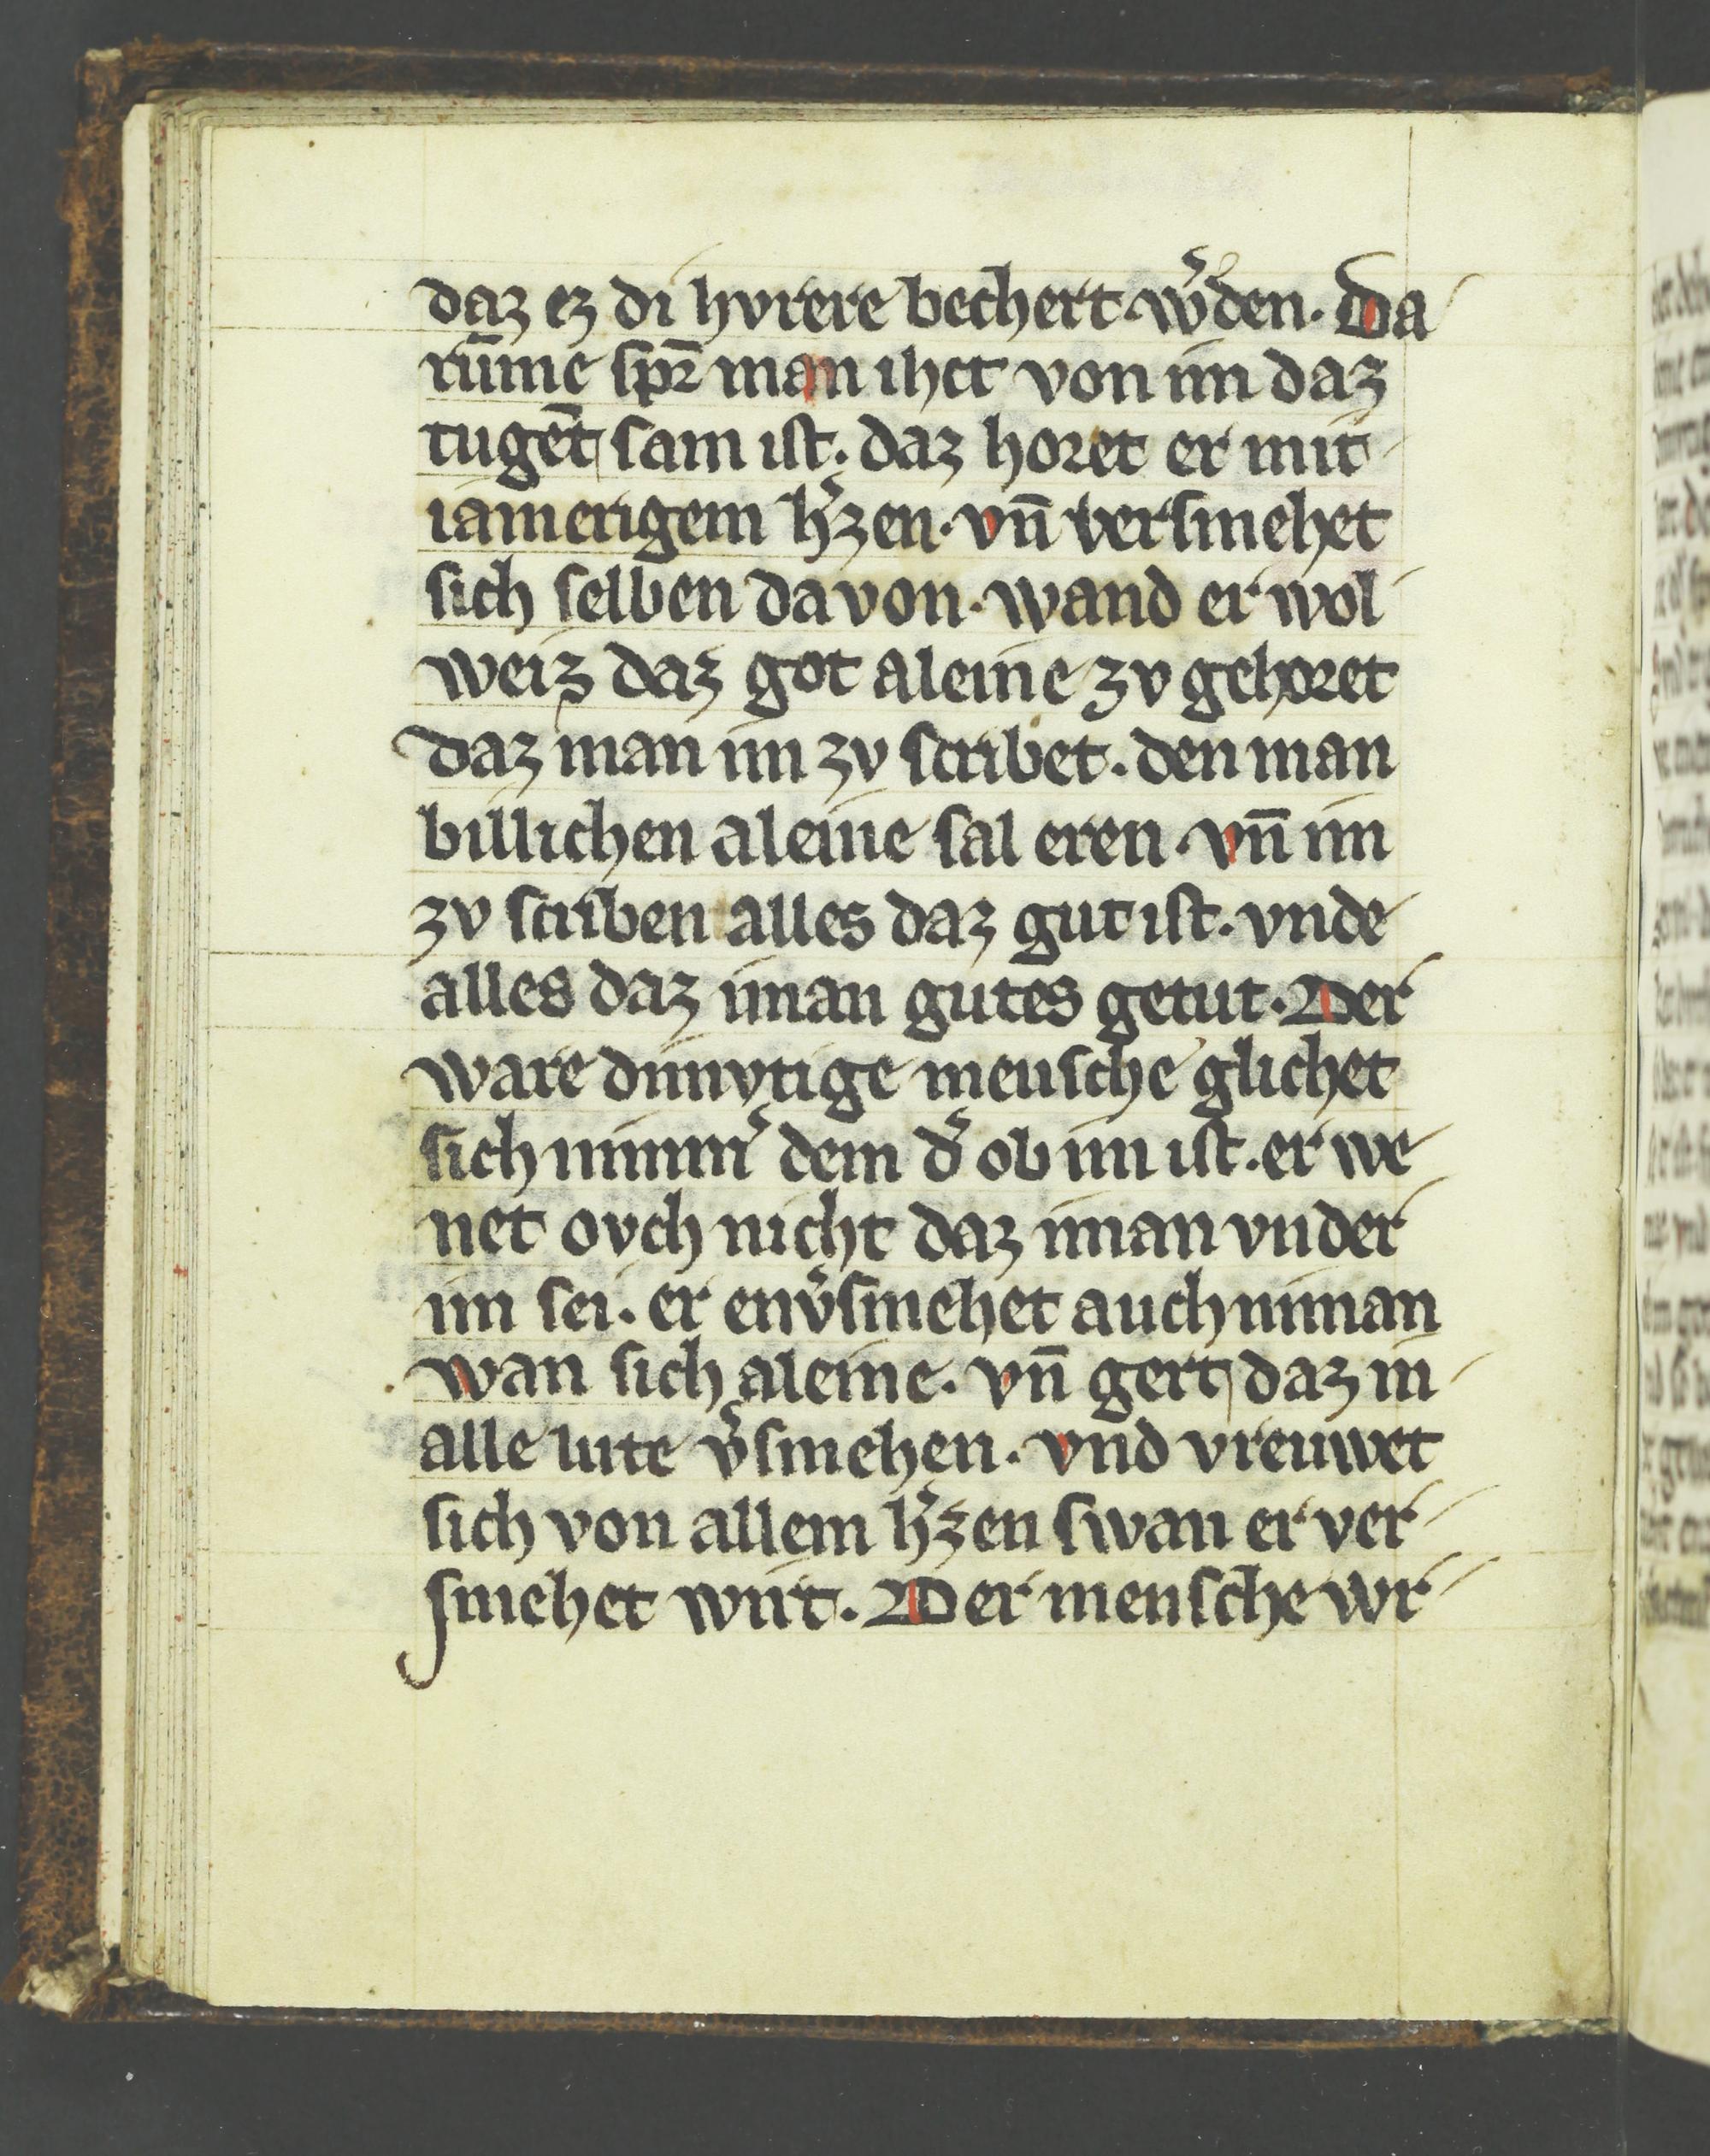 daz ez di hvrere bechert w͛den. Da
rūme spr̄ man ihct von im daz
tugēt sam ist. daz horet er mit
iamerigem h͛zen. vn̄ versmehet
sich selben da von. wand er wol
weiz daz got aleine zv gehoret
daz man im zv scribet. den man
billichen aleine sal eren. vn̄ im
zv scriben alles daz gut ist. vnde
alles daz iman gutes getut. Der
ware dimvtige mensche glichet
sich nimm͛ dem d͛ ob im ist. er we
net ovch nicht daz iman vnder
im sei. er env͛smehet auch niman
wan sich aleine. vn̄ gert daz in
alle lute v͛smehen. vnd vreuwet
sich von allem h͛zen swan er ver
smehet wirt. Der mensche wr